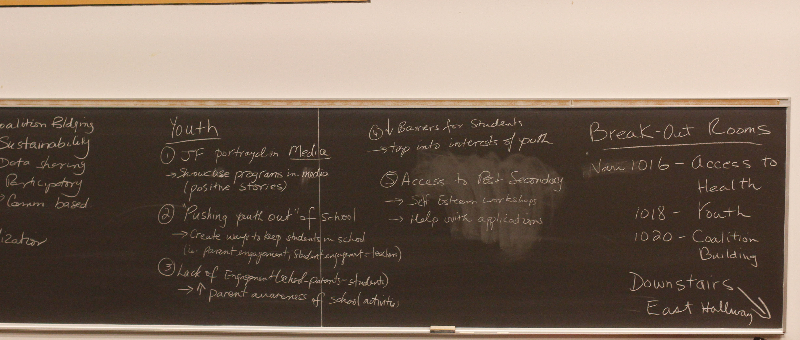 oalition Bldging
Sustainability
Data sharing
Participatory
Comm based
lization
Youth
① JF portrayal in Media
→ Showcase programs in media
(positive stories)
② "Pushing youth out" of school
→ Create ways to keep students in school
parent engagement, student engagement
③ Lack of Engagement (school-parents-students)
→ ↑ parent awareness of school activities
④ ↓ Barriers for Students
→ tap into interests of youth
⑤ Access to Post Secondary
→ Self Esteem workshops
→ Help with applications
Break-Out Rooms
Vari 1016 - Access to
Health
1018 - Youth
1020 - Coalition
Building
Downstairs
East Hallway